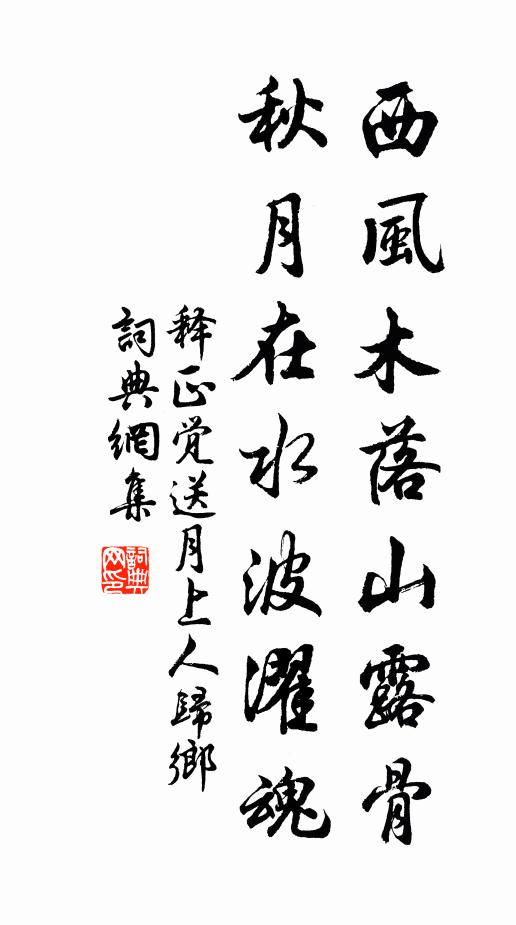 西風木落山露骨
秋月在水波濯魂
释正觉送月上人歸鄉
詞典網集
詞典
网印